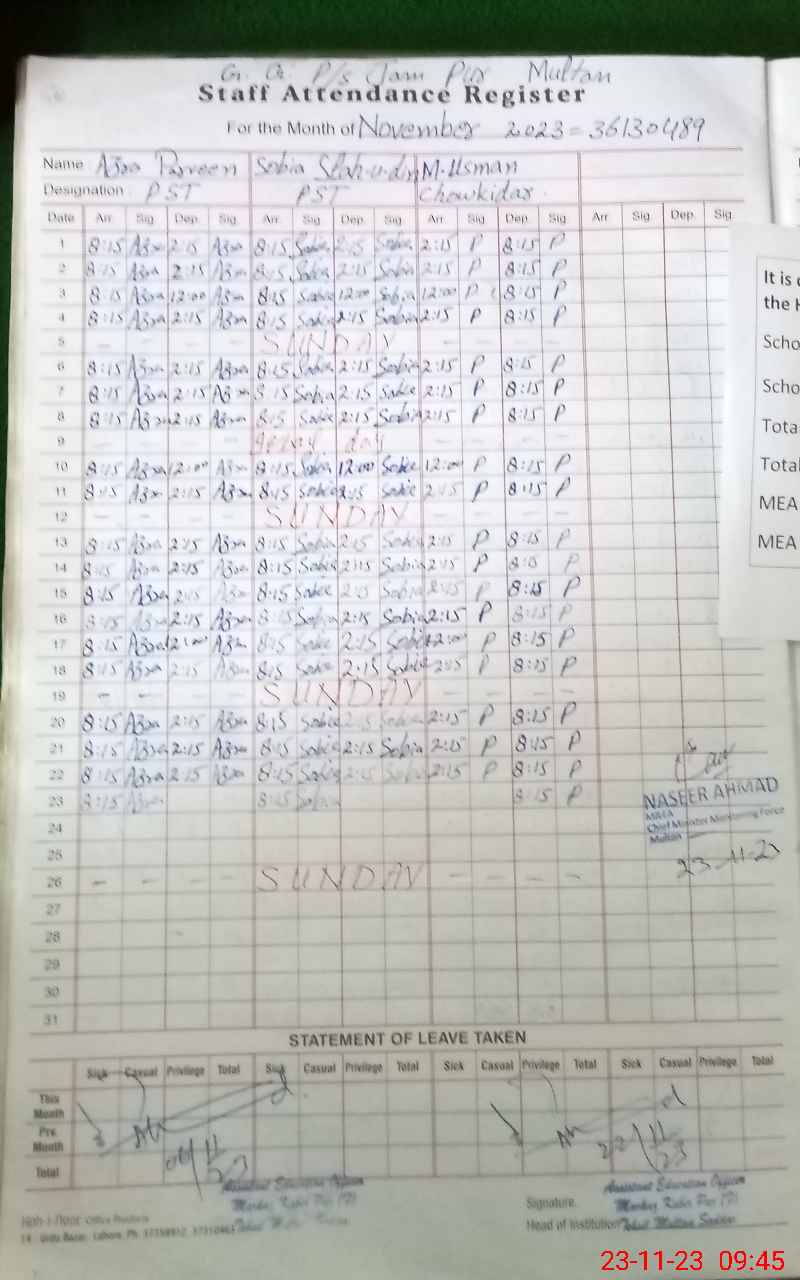 G. G. P/s Jam Pur Multan
Staff Attendance Register
For the Month of November 2023 = 36130489
Name Azra Parveen Sobia Slah-u-din M.Usman
Designation PST PST Chowkidar.
Date Arr. Sig. Dep. Sig. Arr. Sig. Dep. Sig. Arr. Sig. Dep. Sig. Arr. Sig. Dep. Sig.
1 8:15 Azra 2:15 Azra 8:15 Sobia 2:15 Sobia 2:15 P 8:15 P
2 8:15 Azra 2:15 Azra 8:15 Sobia 2:15 Sobia 2:15 P 8:15 P
3 8:15 Azra 12:00 Azra 8:15 Sobia 12:00 Sobia 12:00 P 8:15 P
4 8:15 Azra 2:15 Azra 8:15 Sobia 2:15 Sobia 2:15 P 8:15 P
5 — — SUNDAY — — — —
6 8:15 Azra 2:15 Azra 8:15 Sobia 2:15 Sobia 2:15 P 8:15 P
7 8:15 Azra 2:15 Azra 8:15 Sobia 2:15 Sobia 2:15 P 8:15 P
8 8:15 Azra 2:15 Azra 8:15 Sobia 2:15 Sobia 2:15 P 8:15 P
9 — — day — — — —
10 8:15 Azra 12:00 Azra 8:15 Sobia 12:00 Sobia 12:00 P 8:15 P
11 8:15 Azra 2:15 Azra 8:15 Sobia 2:15 Sobia 2:15 P 8:15 P
12 — — — — SUNDAY — — — —
13 8:15 Azra 2:15 Azra 8:15 Sobia 2:15 Sobia 2:15 P 8:15 P
14 8:15 Azra 2:15 Azra 8:15 Sobia 2:15 Sobia 2:15 P 8:15 P
15 8:15 Azra 2:15 Azra 8:15 Sobia 2:15 Sobia 2:15 P 8:15 P
16 8:15 Azra 2:15 Azra 8:15 Sobia 2:15 Sobia 2:15 P 8:15 P
17 8:15 Azra 12:00 Azra 8:15 Sobia 2:15 Sobia 12:00 P 8:15 P
18 8:15 Azra 2:15 Azra 8:15 Sobia 2:15 Sobia 2:15 P 8:15 P
19 — — SUNDAY — — — —
20 8:15 Azra 2:15 Azra 8:15 Sobia 2:15 Sobia 2:15 P 8:15 P
21 8:15 Azra 2:15 Azra 8:15 Sobia 2:15 Sobia 2:15 P 8:15 P
22 8:15 Azra 2:15 Azra 8:15 Sobia 2:15 Sobia 2:15 P 8:15 P
23 8:15 Azra 8:15 Sobia 8:15 P
24
25
26 — — — — SUNDAY — — — —
27
28
29
30
31
NASEER AHMAD
MEA
Chief Minister Monitoring Force
Multan
23-11-23
It is
the H
Scho
Scho
Tota
Total
MEA
MEA
STATEMENT OF LEAVE TAKEN
Sick Casual Privilege Total Sick Casual Privilege Total Sick Casual Privilege Total Sick Casual Privilege Total
This Month
Pre Month
Total
22/11/23
Assistant Education Officer
Markaz Kabir Pur (F)
Assistant Education Officer
Markaz Kabir Pur (F)
Tehsil Multan Saddar
Signature.
Head of Institution
Office Products
Urdu Bazar, Lahore.
23-11-23 09:45